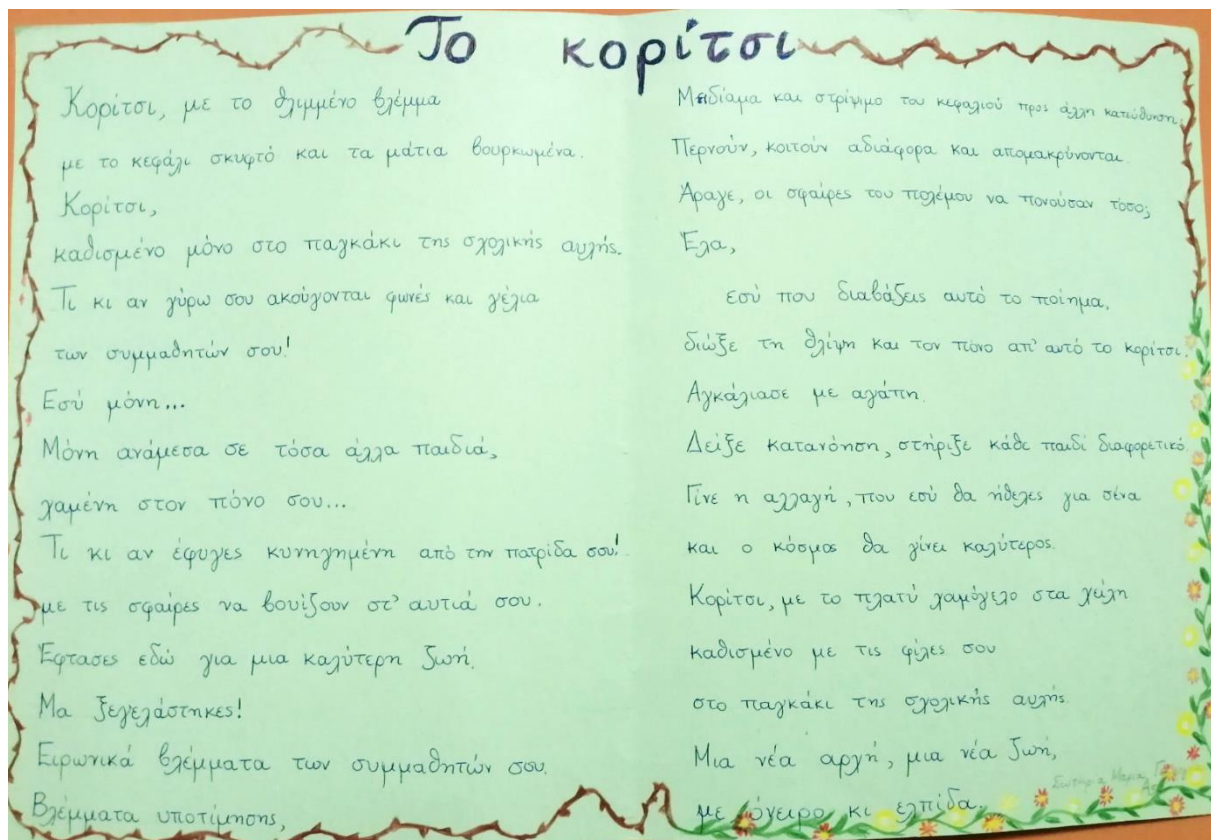 Το κορίτσι
Κορίτσι, με το θλιμμένο βλέμμα
με το κεφάλι σκυφτό και τα μάτια βουρκωμένα.
Κορίτσι,
καθισμένο μόνο στο παγκάκι της σχολικής αυλής.
Τι κι αν γύρω σου ακούγονται φωνές και γέλια
των συμμαθητών σου!
Εσύ μόνη...
Μόνη ανάμεσα σε τόσα άλλα παιδιά,
χαμένη στον πόνο σου...
Τι κι αν έφυγες κυνηγημένη από την πατρίδα σου!
με τις σφαίρες να βουίζουν στ' αυτιά σου.
Έφτασες εδώ για μια καλύτερη ζωή.
Μα ξεγελάστηκες!
Ειρωνικά βλέμματα των συμμαθητών σου.
Βλέμματα υποτίμησης,
Μειδίαμα και στρίψιμο του κεφαλιού προς άλλη κατεύθυνση.
Περνούν, κοιτούν αδιάφορα και απομακρύνονται.
Άραγε, οι σφαίρες του πολέμου να πονούσαν τόσο;
Έλα,
εσύ που διαβάζεις αυτό το ποίημα,
διώξε τη θλίψη και τον πόνο απ' αυτό το κορίτσι.
Αγκάλιασε με αγάπη.
Δείξε κατανόηση, στήριξε κάθε παιδί διαφορετικό.
Γίνε η αλλαγή, που εσύ θα ήθελες για σένα
και ο κόσμος θα γίνει καλύτερος.
Κορίτσι, με το πλατύ χαμόγελο στα χείλη
καθισμένο με τις φίλες σου
στο παγκάκι της σχολικής αυλής.
Μια νέα αρχή, μια νέα ζωή,
με όνειρο κι ελπίδα.
Σωτηρία Μαρία